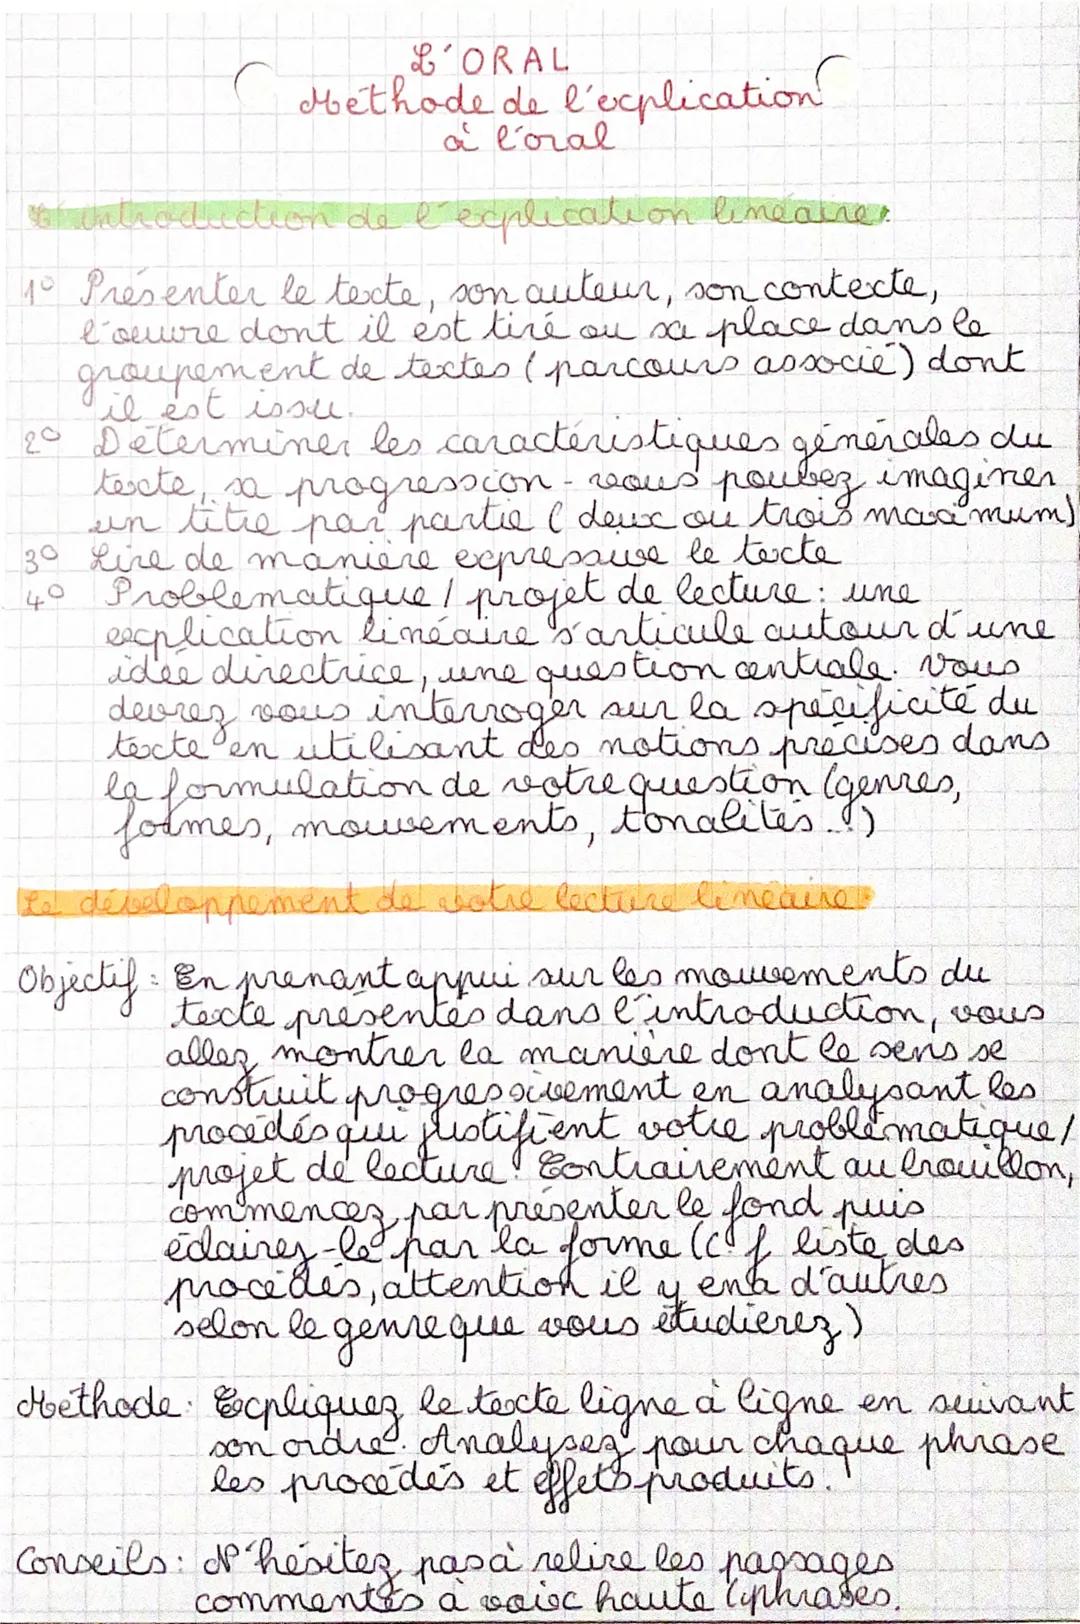 L'ORAL
Méthode de l'explication
à l'oral
L'introduction de l'explication linéaire:
1° Présenter le texte, son auteur, son contexte,
l'oeuvre dont il est tiré ou sa place dans le
groupement de textes (parcours associé) dont
il est issu.
2° Déterminer les caractéristiques générales du
texte, sa progression - vous pouvez imaginer
un titre par partie (deux ou trois maximum)
3° Lire de manière expressive le texte
4° Problématique / projet de lecture : une
explication linéaire s'articule autour d'une
idée directrice, une question centrale. Vous
devrez vous interroger sur la spécificité du
texte en utilisant des notions précises dans
la formulation de votre question (genres,
formes, mouvements, tonalités...)
Le développement de votre lecture linéaire:
Objectif : En prenant appui sur les mouvements du
texte présentés dans l'introduction, vous
allez montrer la manière dont le sens se
construit progressivement en analysant les
procédés qui justifient votre problématique/
projet de lecture. Contrairement au brouillon,
commencez par présenter le fond puis
éclairez-le par la forme (c.f liste des
procédés, attention il y en a d'autres
selon le genre que vous étudierez)
Méthode : Expliquez le texte ligne à ligne en suivant
son ordre. Analysez pour chaque phrase
les procédés et effets produits.
Conseils : N'hésitez pas à relire les passages
commentés à voix haute (phrases.